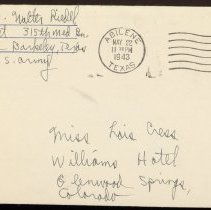 Walter Riedel
315th Med Bn
Barkeley, Texas
S. Army
ABILENE
MAY 22
1943
TEXAS
Miss Lois Cress
Williams Hotel
Glenwood Springs,
Colorado